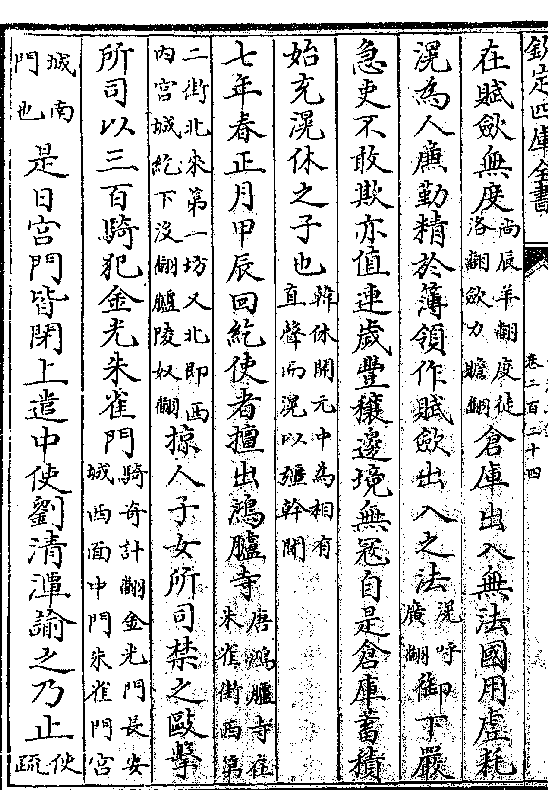 欽定四庫全書
卷二百二十四
在賦斂無度尚辰羊翻度徒洛翻斂力贍翻倉庫出入無法國用虛耗
滉為人廉勤精於簿領作賦斂出入之法滉呼廣翻御下嚴
急吏不敢欺亦值連歲豐穰邊境無冦自是倉庫蓄積
始充滉休之子也韓休開元中為相有直聲而滉以彊幹聞
七年春正月甲辰回紇使者擅出鴻臚寺唐鴻臚寺在朱雀街西第
二街北來第一坊又北即西内宫城紇下没翻臚陵奴翻掠人子女所司禁之毆擊
所司以三百騎犯金光朱雀門騎奇計翻金光門長安城西面中門朱雀門宫
城南門也是日宫門皆閉上遣中使劉清潭諭之乃止使疏